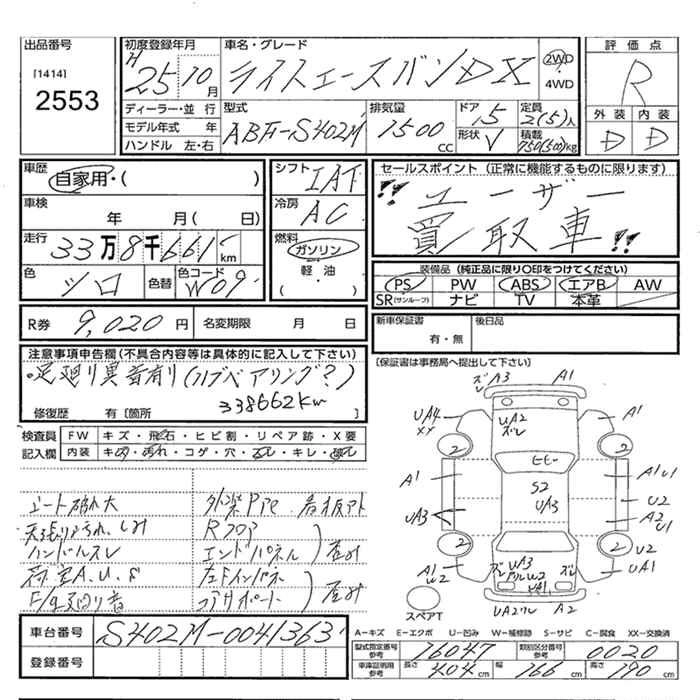 出品番号
[1414]
2553
初度登録年月
H 25 年 10 月
ディーラー・並 行
モデル年式 年
ハンドル 左・右
車名・グレード
ライトエースバンDX
2WD
4WD
型式
ABF-S402M
排気量
1500 cc
ドア
5
形状
V
定員
2(5)人
積載
750(500)kg
評価点
R
外装 内装
D D
車歴
自家用・( )
車検
年 月( 日)
走行
33万8千661 km
色
シロ
色替
色コード
W09
シフト
IAT
冷房
AC
燃料
ガソリン
軽・油
セールスポイント (正常に機能するものに限ります)
!! ユーザー
買取車 !!
装備品 (純正品に限り○印をつけてください)
PS PW ABS エアB AW
SR(サンルーフ) ナビ TV 本革
R券 9,020 円
名変期限 月 日
新車保証書
有・無
後日品
[保証書は事務局へ提出して下さい]
注意事項申告欄(不具合内容等は具体的に記入して下さい)
・足廻り異音有り(ハブベアリング?)
338662Km
修復歴 有 [箇所 ]
検査員
記入欄
FW キズ・飛石・ヒビ割・リペア跡・X要
内装 キズ・汚れ・コゲ・穴・スレ・キレ・破れ
シート破れ大
天張り汚れ、しみ
ハンドルスレ
荷室A.U.S
F/足回り音
外装Pae 看板アト
Rフロア
エンドパネル
歪み
左Fインパネ
コアサポート
歪み
ズレ A3 A1
UA4
XX
UA2
ズレ
A1
2 2
ヒビー
A1
S2
UA3
A1 U1
U2
UA3
A2
U1
2 2
A1
U2
ズレ UA3 ズレ
U2
UA1
U2
UA1
UA2ワレ A2
スペアT
車台番号 S402M-0041363
登録番号
A-キズ E-エクボ U-凹み W-補修跡 S-サビ C-腐食 XX-交換済
型式指定番号
参考
16047
類別区分番号
参考
0020
車庫証明用
参考
長さ 404 cm 幅 166 cm 高さ 190 cm